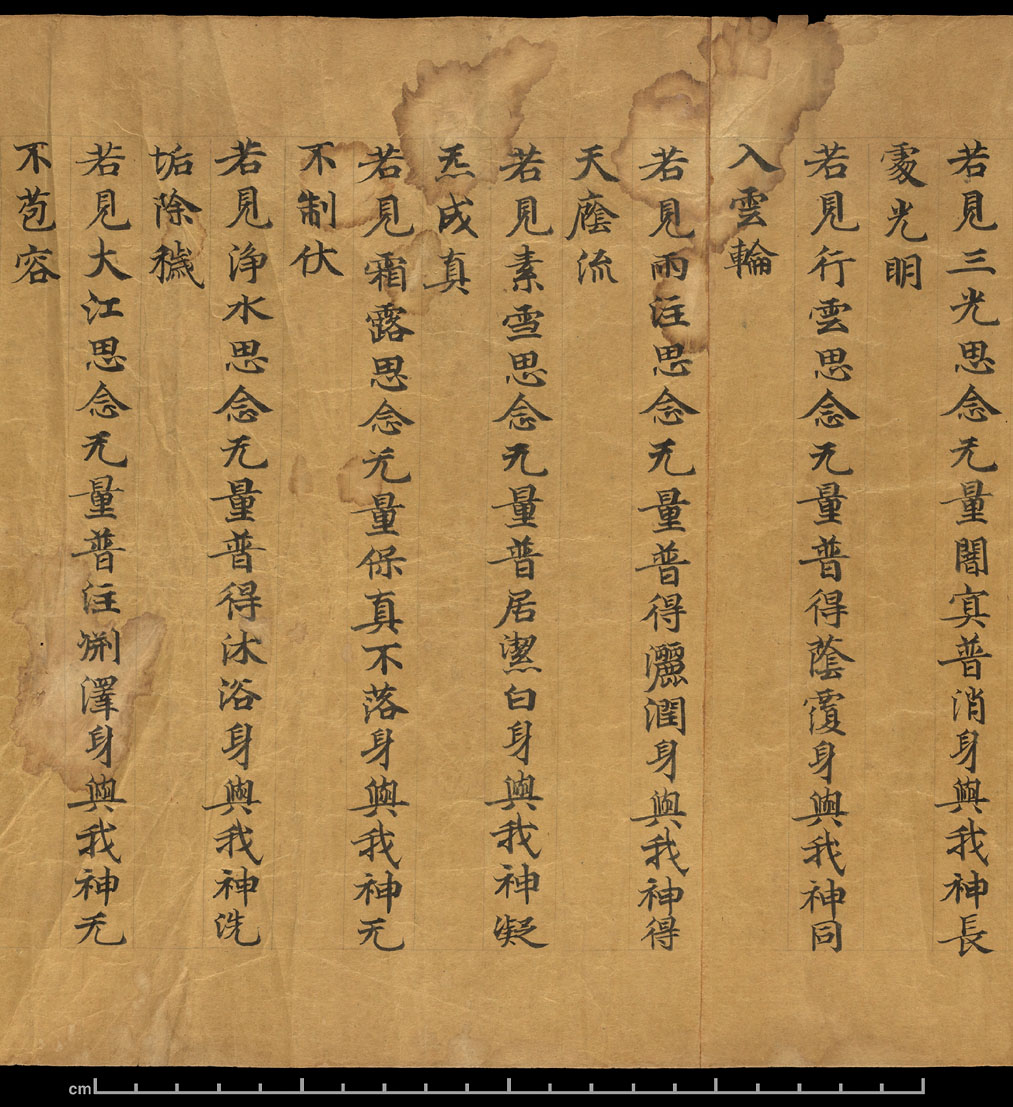 若見三光思念无量闇冥普消身與我神長
處光明
若見行雲思念无量普得蔭覆身與我神同
入雲輪
若見雨注思念无量普得灑潤身與我神得
天蔭流
若見素雪思念无量普居潔白身與我神凝
炁成真
若見霜露思念无量保真不落身與我神无
不制伏
若見淨水思念无量普得沐浴身與我神洗
垢除穢
若見大江思念无量普注澤身與我神无
不苞容